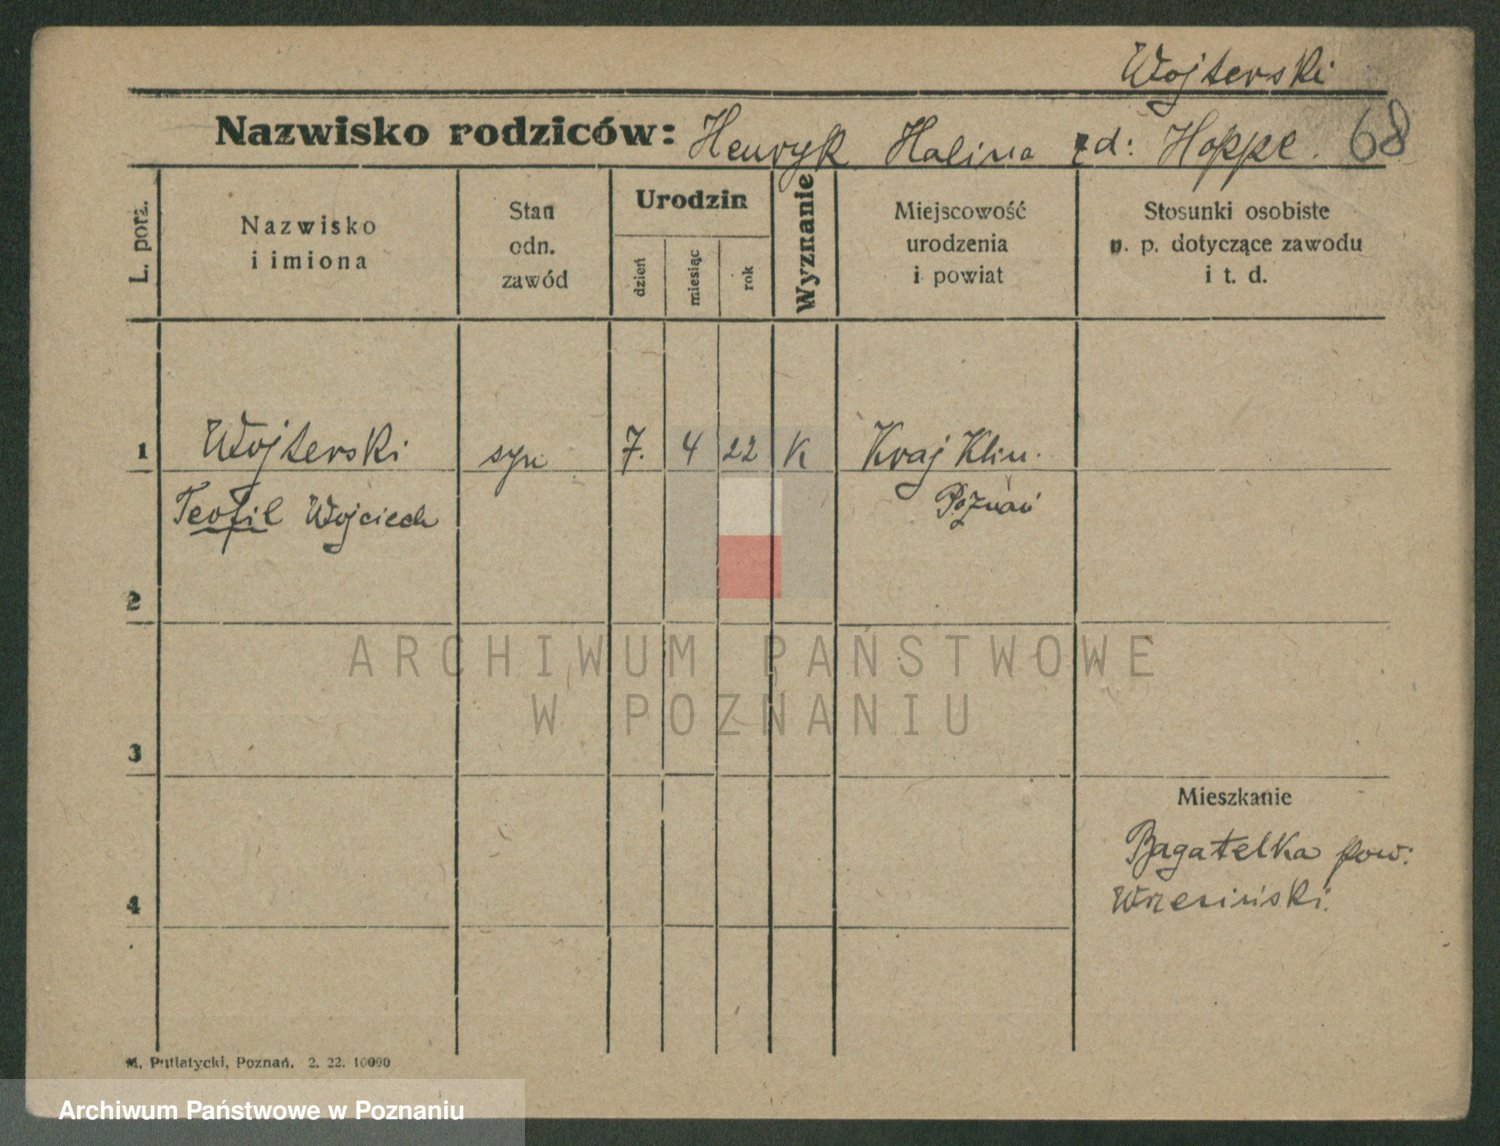 Wojterski
Nazwisko rodziców: Henryk Halina zd: Hoppe. 68
L. porz. Nazwisko i imiona Stan odn. zawód Urodzin dzień miesiąc rok Wyznanie Miejscowość urodzenia i powiat Stosunki osobiste n. p. dotyczące zawodu i t. d.
1 Wojterski syn 7. 4 22 K Kraj Klin.
Teofil Wojciech Poznań
2
ARCHIWUM PAŃSTWOWE
W POZNANIU
3
Mieszkanie
Bagatelka pow:
4 Wrzesiński.
M. Putiatycki, Poznań. 2. 22. 10000
Archiwum Państwowe w Poznaniu